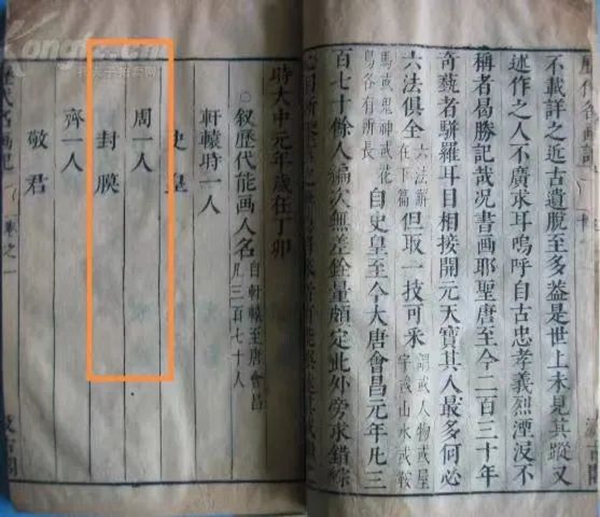 歷代名画記
不載詳之近古遺脫至多盖是世上未見其蹤又
述作之人不廣求耳嗚呼自古忠孝義烈湮沒不
稱者曷勝記哉况書画耶聖唐至今二百三十年
奇藝者駢羅耳目相接開元天寶其人最多何必
六法俱全六法解在下篇但取一技可采謂或人物或屋宇或山水或鞍
馬或鬼神或花鳥各有所長自史皇至今大唐會昌元年凡三
百七十餘人編次無差銓量頗定此外旁求錯綜
時大中元年歲在丁卯
○叙歷代能画人名自軒轅至唐會昌凡三百七十人
軒轅時一人
史皇
周一人
封膜
齊一人
敬君
歷代名画記 卷之一 汲古閣